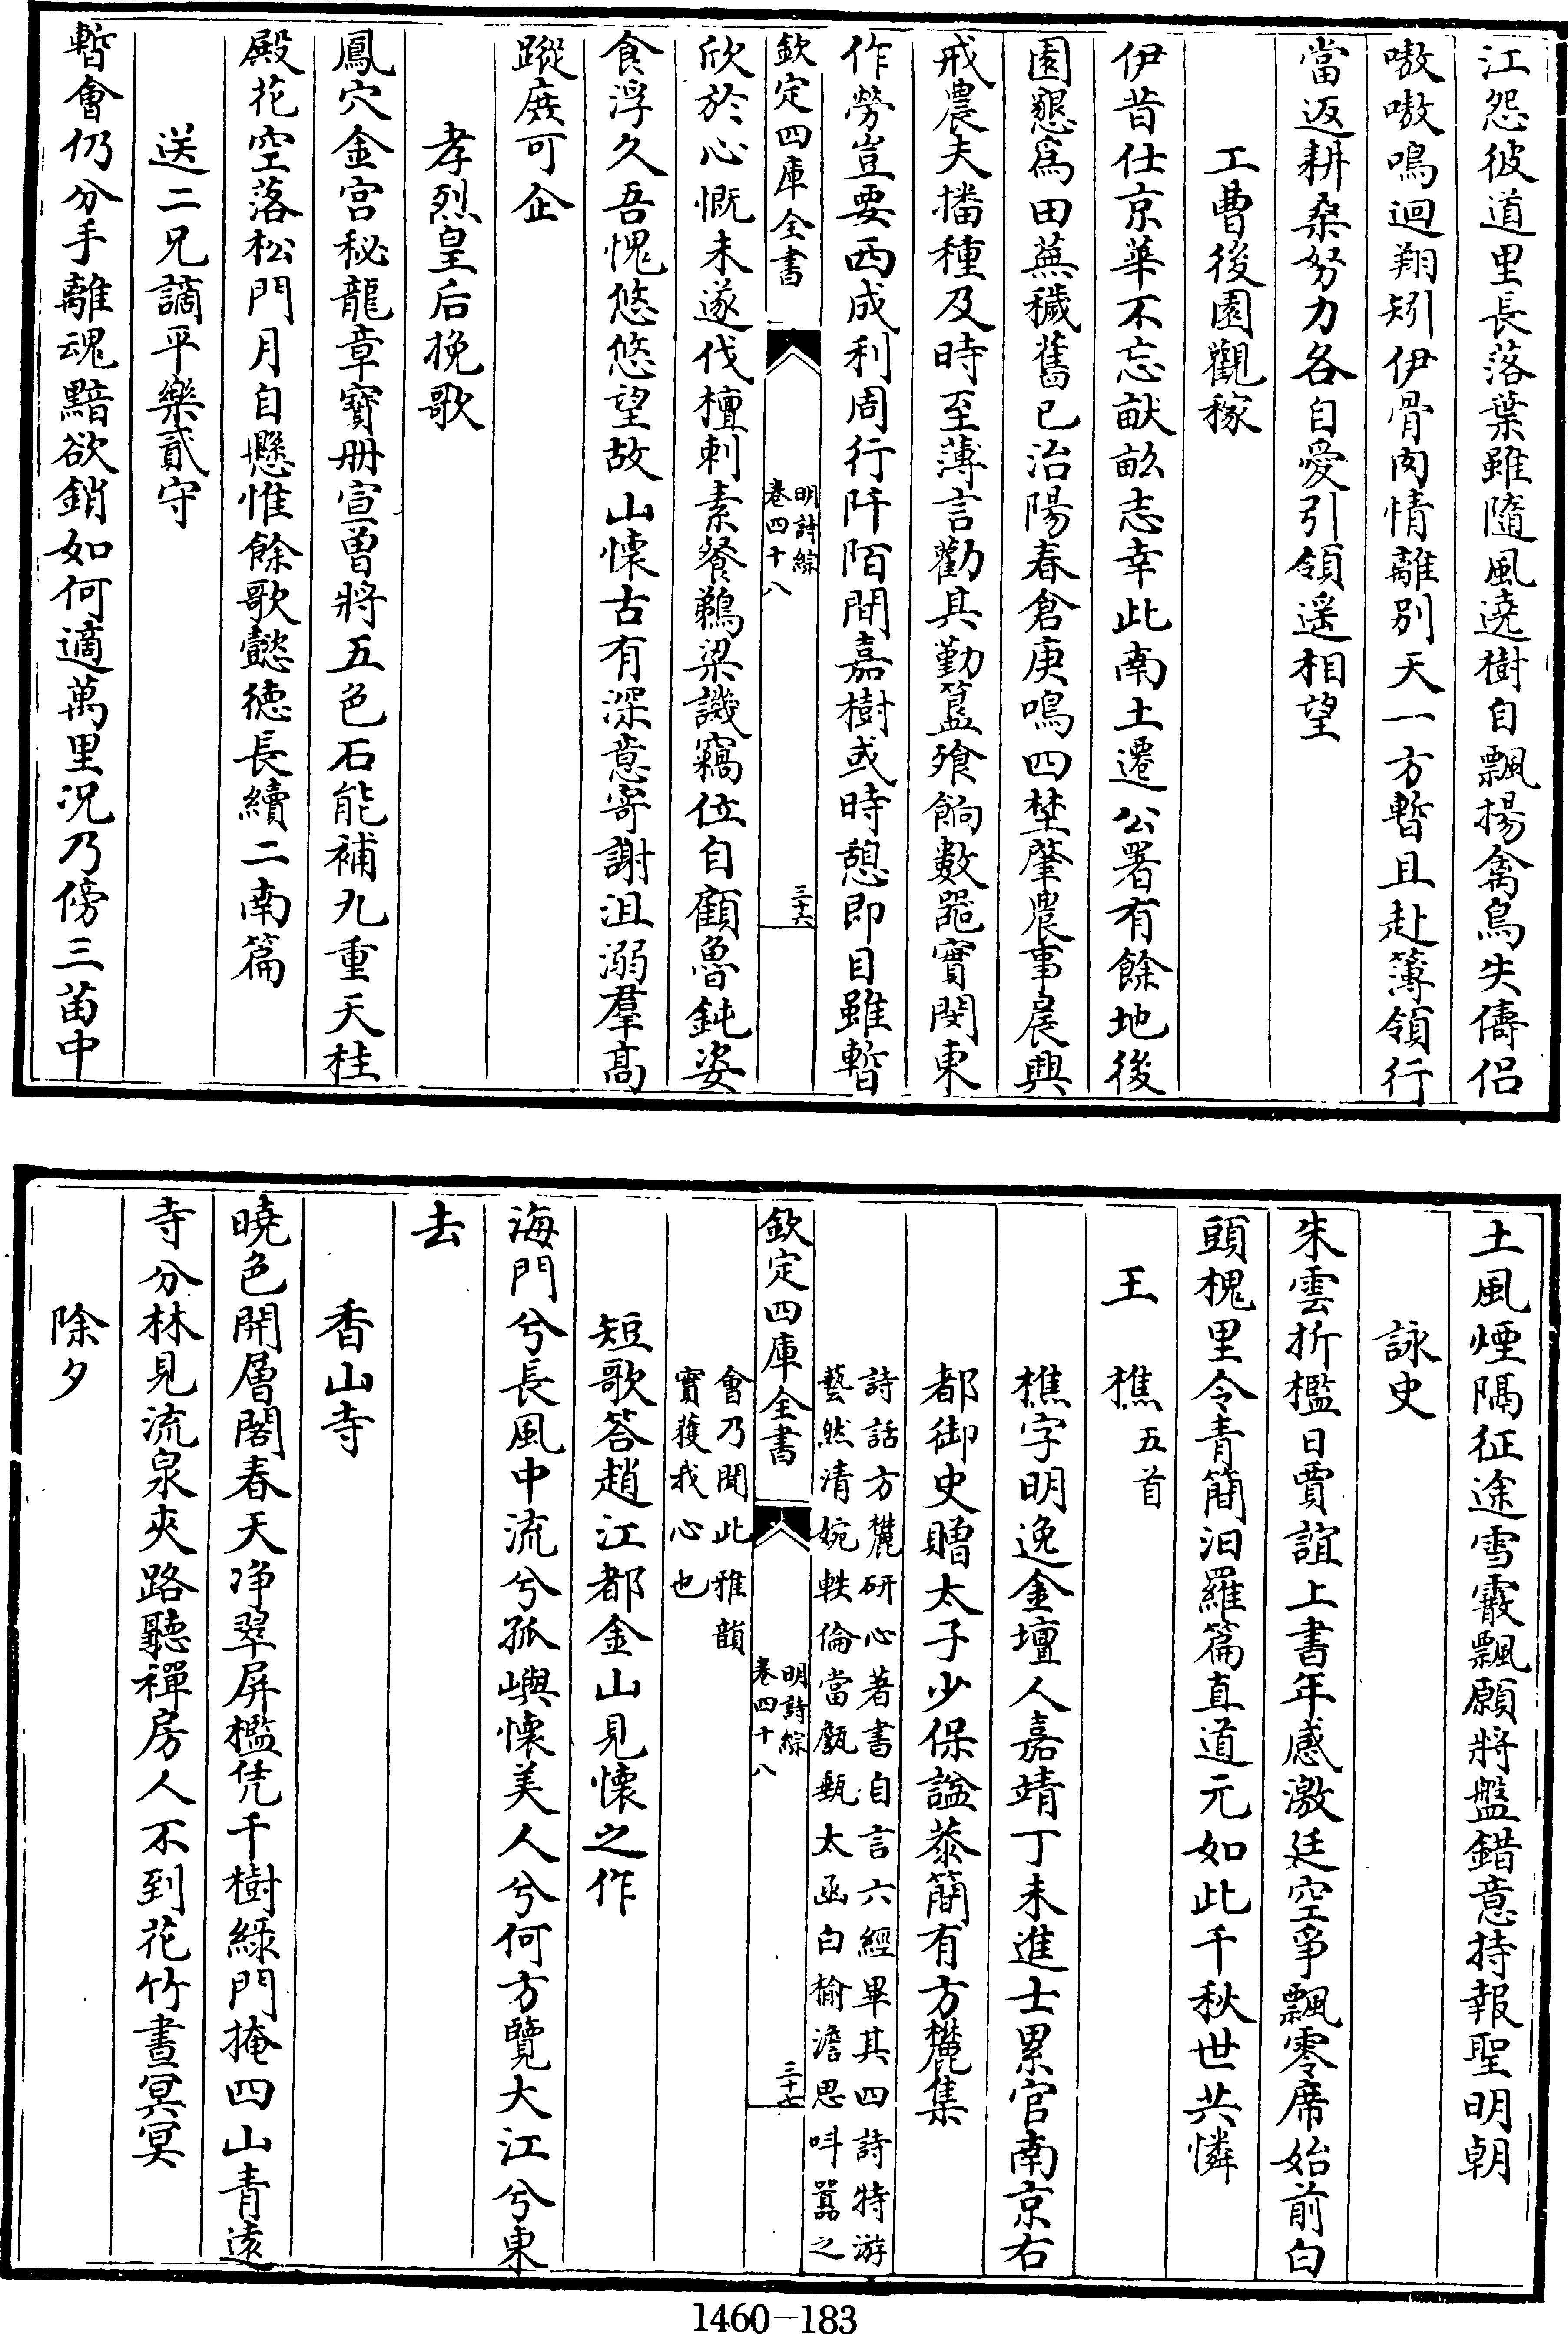 江怨彼道里長落葉雖隨風遶樹自飄揚禽鳥失儔侣
嗷嗷鳴迴翔矧伊骨肉情離别天一方暫且赴簿領行
當返耕桑努力各自愛引領遥相望
工曹後園觀稼
伊昔仕京華不忘畎畝志幸此南土遷公署有餘地後
園懇爲田蕪穢舊已治陽春倉庚鳴四埜肇農事晨興
戒農夫播種及時至薄言勸其勤簋飱餉數噐實閔東
作勞豈要西成利周行阡陌間嘉樹或時憩即目雖暫
欽定四庫全書
明詩綜
卷四十八
三十六
欣於心慨未遂伐檀刺素餐鵜梁譏竊位自顧魯鈍姿
食浮久吾愧悠悠望故山懐古有深意寄謝沮溺羣髙
蹤庶可企
孝烈皇后挽歌
鳳穴金宫秘龍章寶册宣曽將五色石能補九重天桂
殿花空落松門月自懸惟餘歌懿徳長續二南篇
送二兄謫平樂貳守
暫會仍分手離魂黯欲銷如何適萬里況乃傍三苗中
土風煙隔征途雪霰飄願將盤錯意持報聖明朝
詠史
朱雲折檻日賈誼上書年感激廷空爭飄零席始前白
頭槐里令青簡汨羅篇直道元如此千秋世共憐
王樵五首
樵字明逸金壇人嘉靖丁未進士累官南京右
都御史贈太子少保諡恭簡有方麓集
詩話方麓研心著書自言六經畢其四詩特游
藝然清婉軼倫當甔甀太函白榆澹思呌囂之
欽定四庫全書
明詩綜
卷四十八
三十七
會乃聞此雅韻
實獲我心也
短歌答趙江都金山見懐之作
海門兮長風中流兮孤嶼懐美人兮何方覽大江兮東
去
香山寺
曉色開層閣春天净翠屏檻凭千樹緑門掩四山青逺
寺分林見流泉夾路聽禪房人不到花竹晝冥冥
除夕
1460-183